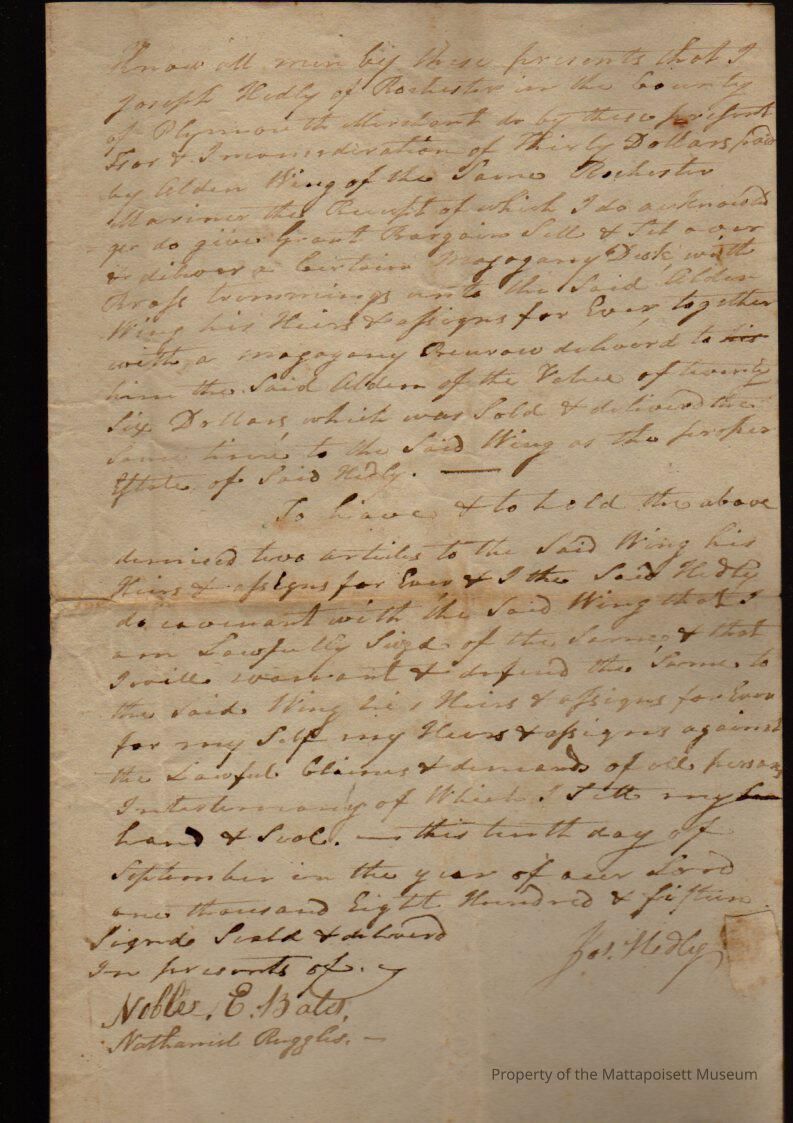 Know all men by these presents that I
Joseph Hedly of Rochester in the County
of Plymouth Merchant do by these present
For & I moncideration of Thirly Dollars paid
by Alden Wing of the Same Rochester
Mariner the Receipt of which I do acknowled
ge do give Grant Bargain Sell & Set over
& diliver a Certain Mogogany Desk with
Brass trimmings unto the Said Alden
Wing his Heirs & assigns for Ever together
with a mogogany Beurow deliverd to his
him the Said Alden of the Value of twenty
Six Dollars which was Sold & deliverd the
same time to the Said Wing as the proper
Estate of Said Hedly.
To have & to hold the above
demised two articles to the Said Wing his
Heirs & assigns for Ever & I the Said Hedly
do covenant with the Said Wing that I
am Lawfully Sized of the Same & that
I will warrant & defend the Same to
the said Wing his Heirs & assigns for Ever
for my Self my Heirs & assigns against
the Lawful Claims & demands of all persons
In testemony of Which I Sett my
hand & Seal. — this tenth day of
September in the year of our Lord
one thousand Eight Hundred & fifteen
Signd Seald & deliverd
In presents of.
Jos. Hedly
Noble. E. Bates,
Nathaniel Ruggles. —
Property of the Mattapoisett Museum